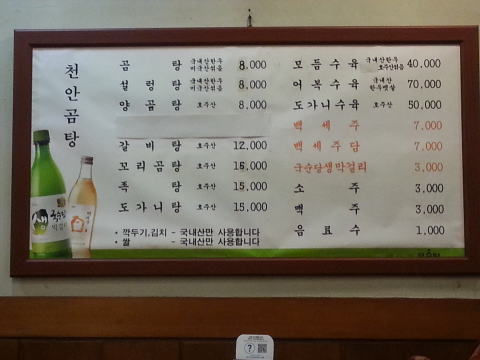 천안곰탕
곰탕 국내산한우 미국산섞음 8,000
설렁탕 국내산한우 미국산섞음 8,000
양곰탕 호주산 8,000
갈비탕 호주산 12,000
꼬리곰탕 호주산 16,000
족탕 호주산 15,000
도가니탕 호주산 15,000
· 깍두기,김치 - 국내산만 사용합니다
· 쌀 - 국내산만 사용합니다
모듬수육 국내산한우 호주산섞음 40,000
어복수육 국내산 한우뱃살 70,000
도가니수육 호주산 50,000
백세주 7,000
백세주담 7,000
국순당생막걸리 3,000
소주 3,000
맥주 3,000
음료수 1,000
생
국순당
막걸리
?